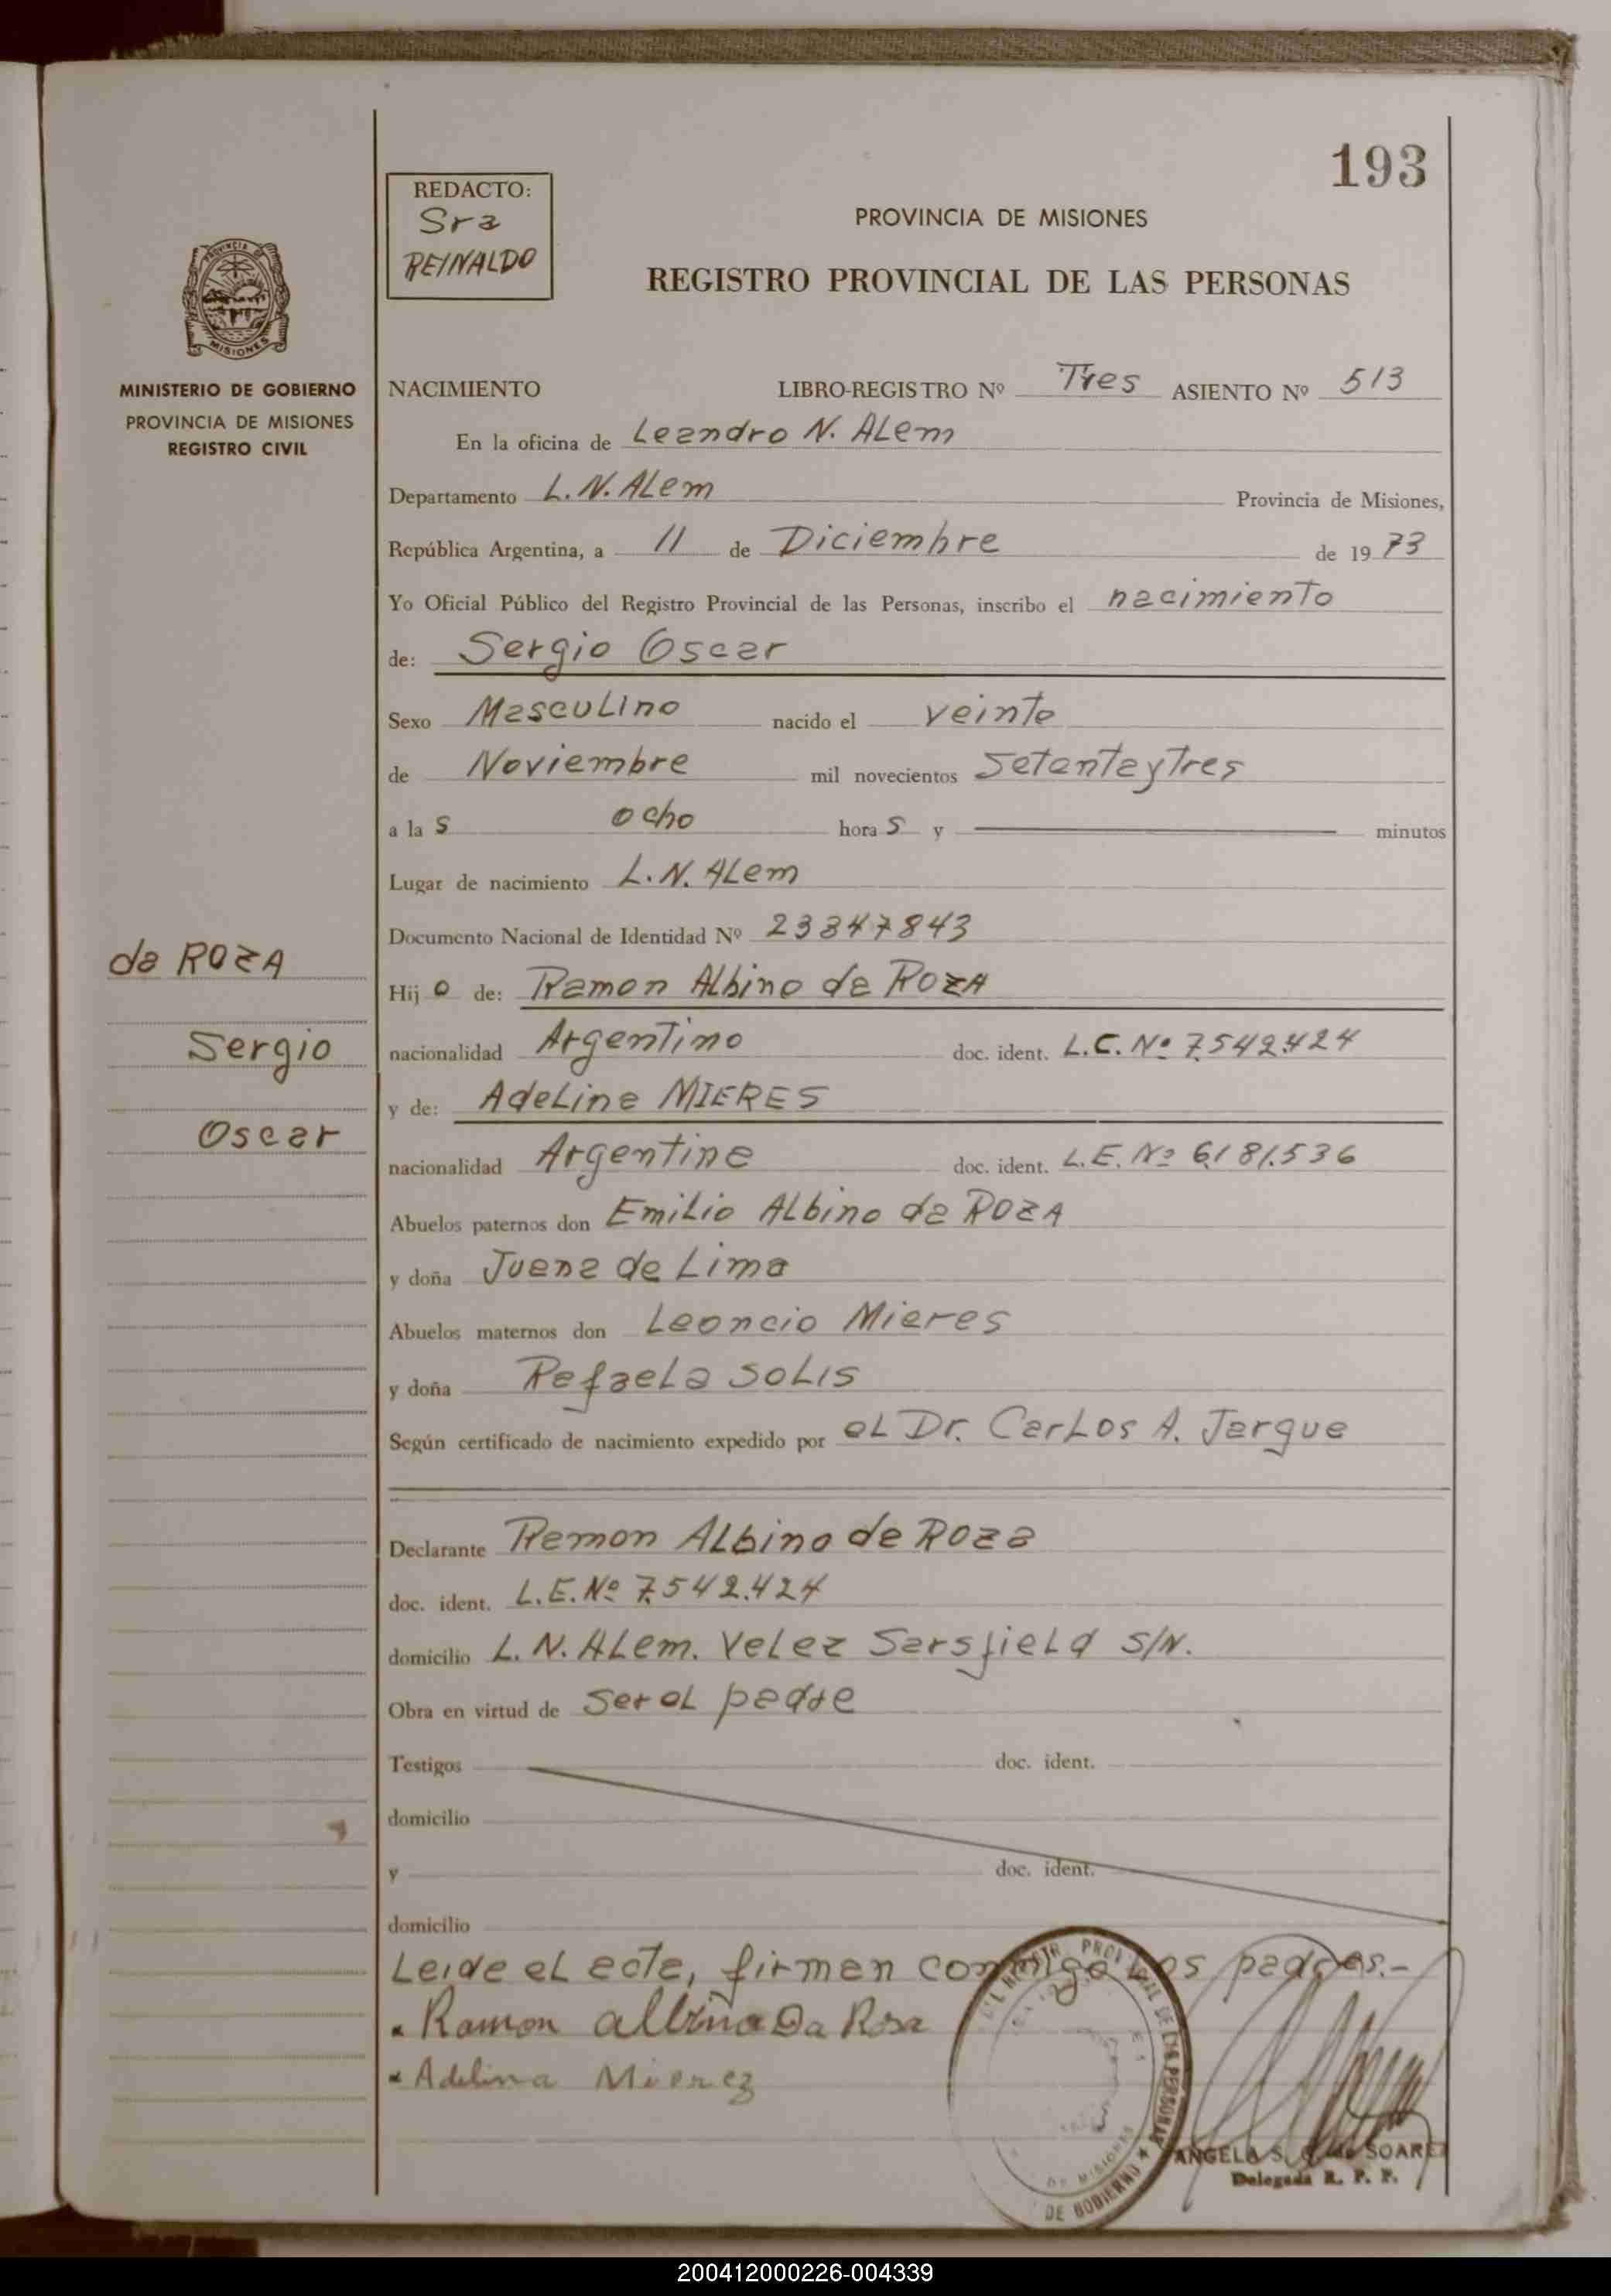 193
REDACTO:
Sra
REINALDO
PROVINCIA DE MISIONES
REGISTRO PROVINCIAL DE LAS PERSONAS
MISIONES
MINISTERIO DE GOBIERNO
PROVINCIA DE MISIONES
REGISTRO CIVIL
NACIMIENTO LIBRO-REGISTRO Nº Tres ASIENTO Nº 513
En la oficina de Leandro N. ALem
Departamento L.N. ALem Provincia de Misiones,
República Argentina, a 11 de Diciembre de 1973
Yo Oficial Público del Registro Provincial de las Personas, inscribo el nacimiento
de: Sergio Oscar
Sexo Masculino nacido el veinte
de Noviembre mil novecientos Setentaytres
a las ocho horas y minutos
Lugar de nacimiento L.N. ALem
Documento Nacional de Identidad Nº 23347843
da ROZA
Hijo de: Ramon Albino da ROZA
Sergio
nacionalidad Argentino doc. ident. L.C. Nº 7.542.424
y de: Adelina MIERES
Oscar
nacionalidad Argentina doc. ident. L.E. Nº 6.181.536
Abuelos paternos don Emilio Albino da ROZA
y doña Juana de Lima
Abuelos maternos don Leoncio Mieres
y doña Rafaela SOLIS
Según certificado de nacimiento expedido por el Dr. Carlos A. Jargue
Declarante Ramon Albino de Roza
doc. ident. L.E. Nº 7.542.424
domicilio L. N. ALem. Velez Sarsfield S/N.
Obra en virtud de ser el padre
Testigos doc. ident.
domicilio
y doc. ident.
domicilio
Leida el acta, firman conmigo los padres.-
Ramon albino Da Rosa
Adelina Mierez
DE MISIONES
DE GOBIERNO
ANGELA S. de SOARE
Delegada R. P. P.
200412000226-004339